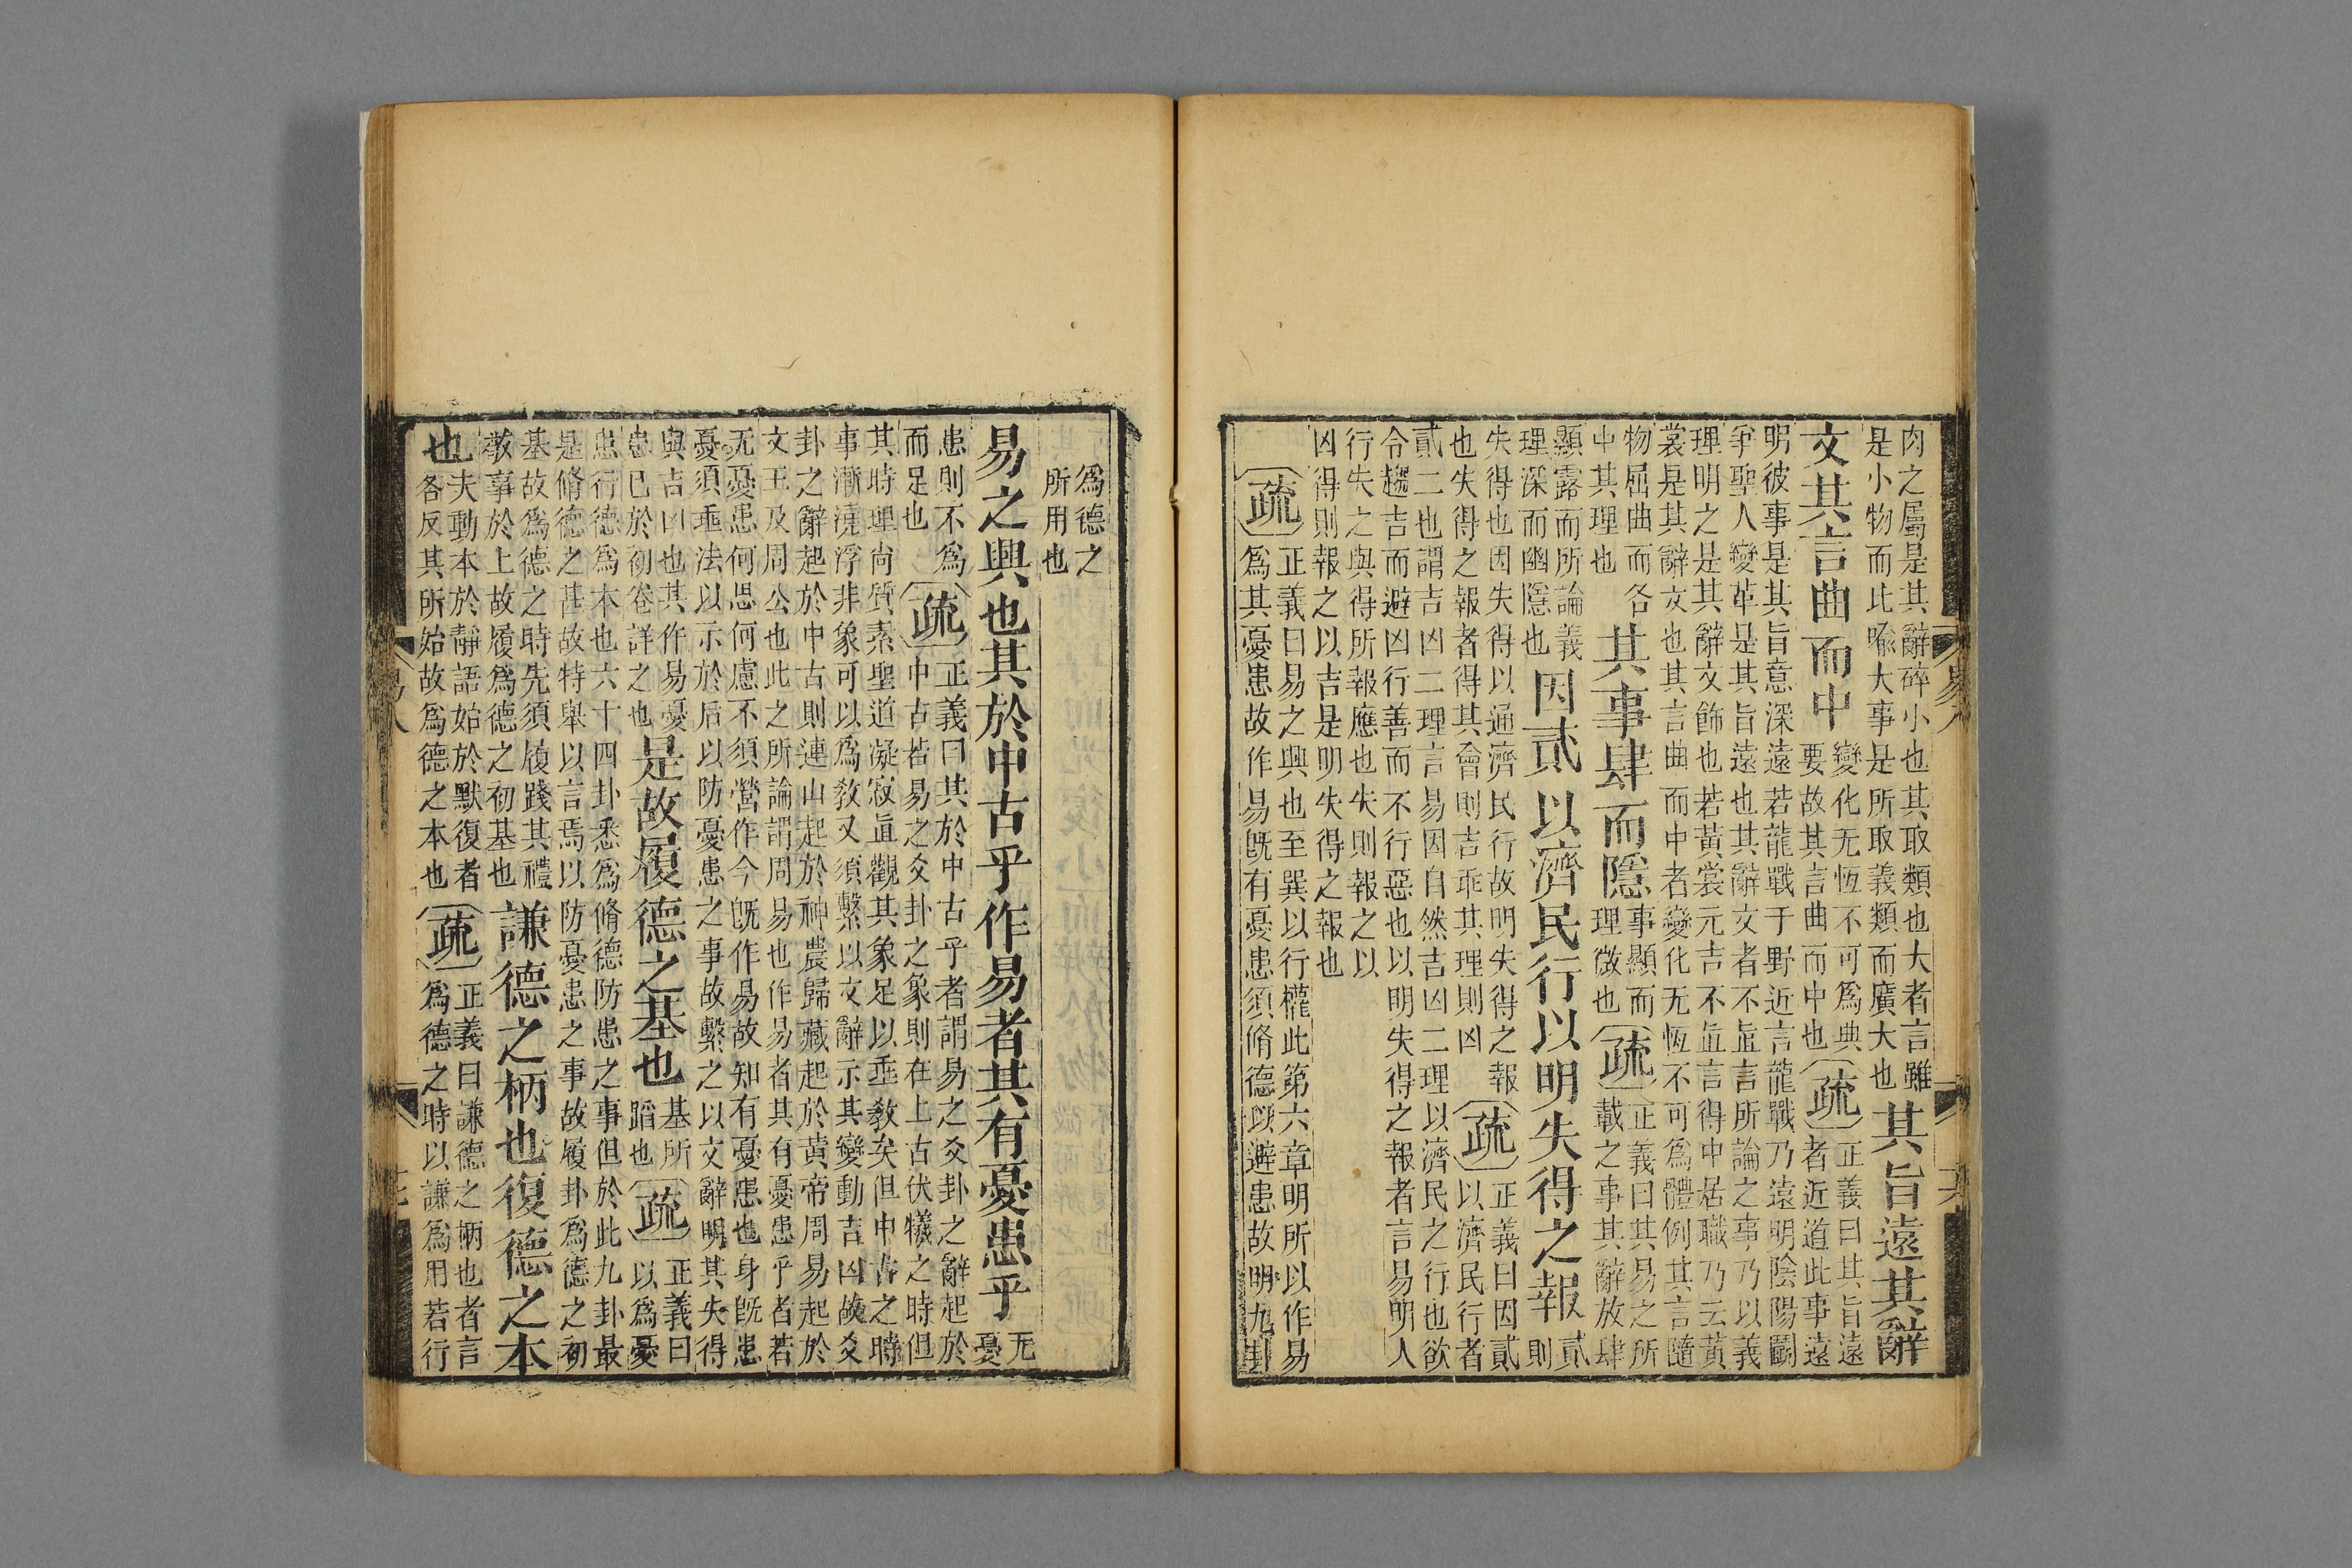 肉之屬是其辭碎小也其取類也大者言雖
是小物而此喻大事是所取義類而廣大也
其旨遠其辭
文其言曲而中
變化无恆不可爲典
要故其言曲而中也
疏
正義曰其旨遠
者近道此事遠
明彼事是其旨意深遠若龍戰于野近言龍戰乃遠明陰陽鬭
爭聖人變革是其旨遠也其辭文者不直言所論之事乃以義
理明之是其辭文飾也若黃裳元吉不直言得中居職乃云黃
裳是其辭文也其言曲而中者變化无恆不可爲體例其言隨
物屈曲而各
中其理也
其事肆而隱
事顯而
理微也
疏
正義曰其易之所
載之事其辭放肆
顯露而所論義
理深而幽隱也
因貳以濟民行以明失得之報
貳
則
失得也因失得以通濟民行故明失得之報
也失得之報者得其會則吉乖其理則凶
疏
正義曰因貳
以濟民行者
貳二也謂吉凶二理言易因自然吉凶二理以濟民之行也欲
令趨吉而避凶行善而不行惡也以明失得之報者言易明人
行失之與得所報應也失則報之以
凶得則報之以吉是明失得之報也
疏
正義曰易之興也至巽以行權此第六章明所以作易
爲其憂患故作易既有憂患須脩德以避患故明九卦
易八
爲德之
所用也
易之興也其於中古乎作易者其有憂患乎
无
憂
患則不爲
而足也
疏
正義曰其於中古乎者謂易之爻卦之辭起於
中古若易之爻卦之象則在上古伏犧之時但
其時理尚質素聖道凝寂直觀其象足以垂敎矣但中古之時
事漸澆浮非象可以爲敎又須繫以文辭示其變動吉凶故爻
卦之辭起於中古則連山起於神農歸藏起於黃帝周易起於
文王及周公也此之所論謂周易也作易者其有憂患乎者若
无憂患何思何慮不須營作今旣作易故知有憂患也身旣患
憂須垂法以示於后以防憂患之事故繫之以文辭明其失得
與吉凶也其作易憂
患已於初卷詳之也
是故履德之基也
基所
蹈也
疏
正義曰
以爲憂
患行德爲本也六十四卦悉爲脩德防患之事但於此九卦最
是脩德之甚故特舉以言焉以防憂患之事故履卦爲德之初
基故爲德之時先須履踐其禮
敬事於上故履爲德之初基也
謙德之柄也復德之本
也
夫動本於靜語始於默復者
各反其所始故爲德之本也
疏
正義曰謙德之柄也者言
爲德之時以謙爲用若行
易八